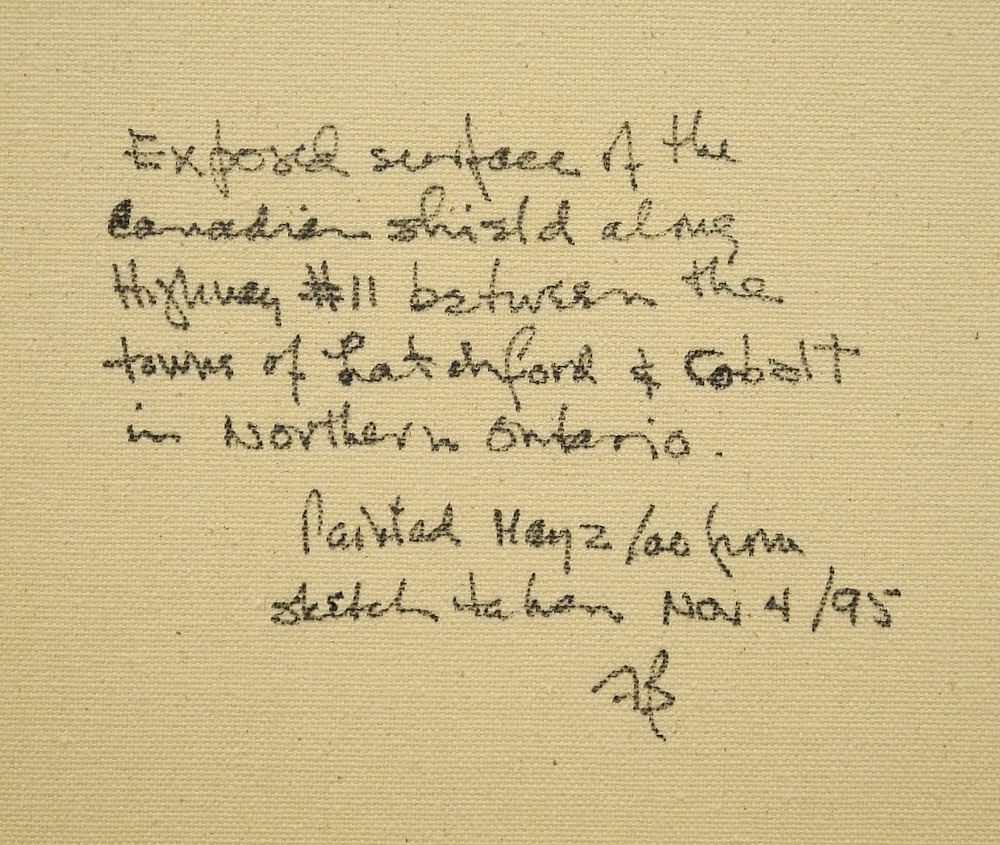 Exposed surface of the
Canadian shield along
Highway #11 between the
towns of Latchford & Cobalt
in Northern Ontario.
Painted May 2/00 from
sketch taken Nov 4/95